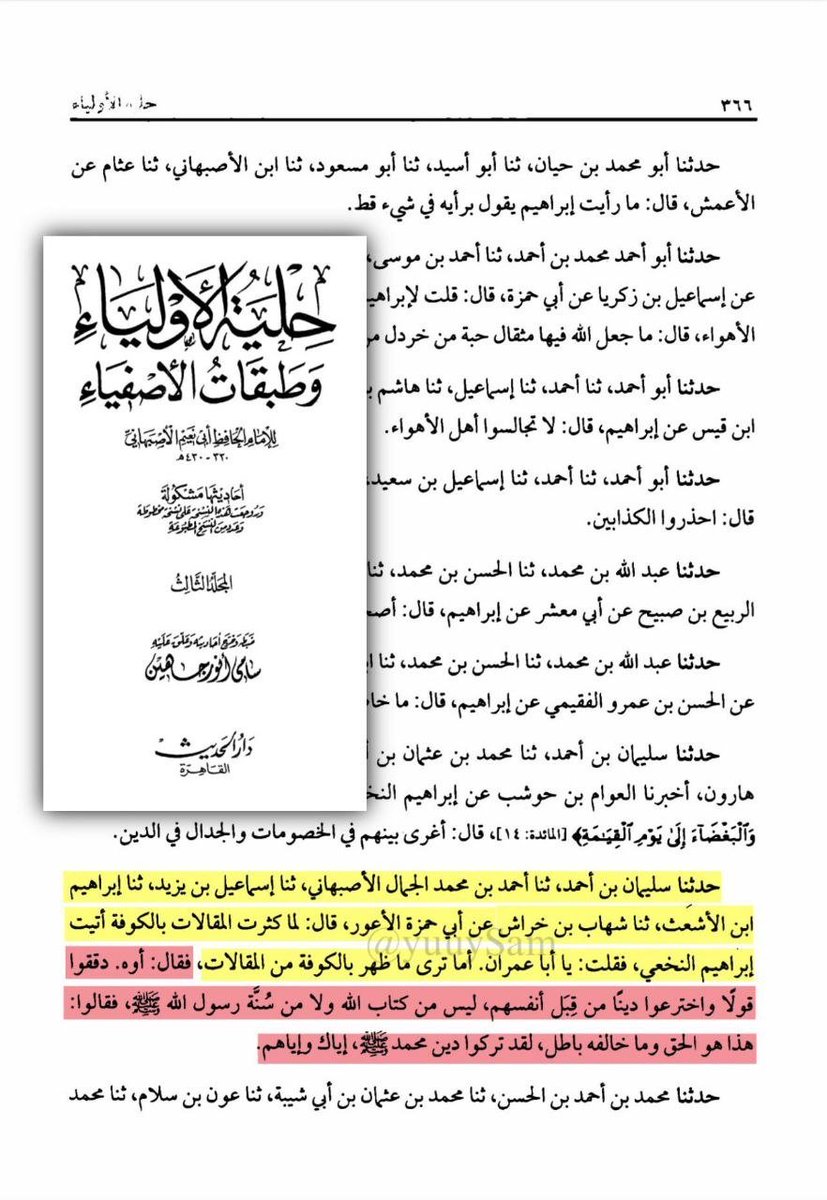 ٣٦٦
حلية الأولياء
حدثنا أبو محمد بن حيان، ثنا أبو أسيد، ثنا أبو مسعود، ثنا ابن الأصبهاني، ثنا عثام عن
الأعمش، قال: ما رأيت إبراهيم يقول برأيه في شيء قط.
حدثنا أبو أحمد محمد بن أحمد، ثنا أحمد بن موسى،
عن إسماعيل بن زكريا عن أبي حمزة، قال: قلت لإبراهيم
الأهواء، قال: ما جعل الله فيها مثقال حبة من خردل من
حدثنا أبو أحمد، ثنا أحمد، ثنا إسماعيل، ثنا هاشم
ابن قيس عن إبراهيم، قال: لا تجالسوا أهل الأهواء.
حدثنا أبو أحمد، ثنا أحمد، ثنا إسماعيل بن سعيد،
قال: احذروا الكذابين.
حدثنا عبد الله بن محمد، ثنا الحسن بن محمد، ثنا
الربيع بن صبيح عن أبي معشر عن إبراهيم، قال:
حدثنا عبد الله بن محمد، ثنا الحسن بن محمد، ثنا
عن الحسن بن عمرو الفقيمي عن إبراهيم، قال: ما
حدثنا سليمان بن أحمد، ثنا محمد بن عثمان بن
هارون، أخبرنا العوام بن حوشب عن إبراهيم
وَٱلْبَغْضَآءَ إِلَىٰ يَوْمِ ٱلْقِيَـٰمَةِ﴾ [المائدة: ١٤]، قال: أغرى بينهم في الخصومات والجدال في الدين.
حدثنا سليمان بن أحمد، ثنا أحمد بن محمد الجمال الأصبهاني، ثنا إسماعيل بن يزيد، ثنا إبراهيم
ابن الأشعث، ثنا شهاب بن خراش عن أبي حمزة الأعور، قال: لما كثرت المقالات بالكوفة أتيت
إبراهيم النخعي، فقلت: يا أبا عمران. أما ترى ما ظهر بالكوفة من المقالات، فقال: أوه. دققوا
قولًا واخترعوا دينًا من قِبَل أنفسهم، ليس من كتاب الله ولا من سُنَّة رسول الله ﷺ، فقالوا:
هذا هو الحق وما خالفه باطل، لقد تركوا دين محمد ﷺ، إياك وإياهم.
حدثنا محمد بن أحمد بن الحسن، ثنا محمد بن عثمان بن أبي شيبة، ثنا عون بن سلام، ثنا محمد
حِلْيَةُ الأَوْلِيَاءِ
وَطَبَقَاتُ الأَصْفِيَاءِ
للإمام الحافظ أبي نعيم الأصبهاني
٣٣٠ - ٤٣٠ هـ
أحاديثها مشكولة
وروجعت هذه النسخة على نسخة مخطوطة
وعدد من النسخ المطبوعة
المجلد الثالث
ضبطه وخرج أحاديثه وعلق عليه
سامي أنور جاهين
دار الحديث
القاهرة
@yuuySam